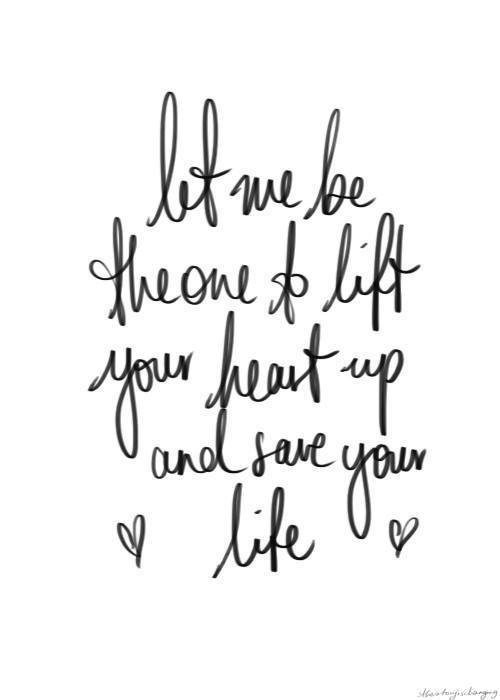 let me be
the one to lift
your heart up
and save your
life